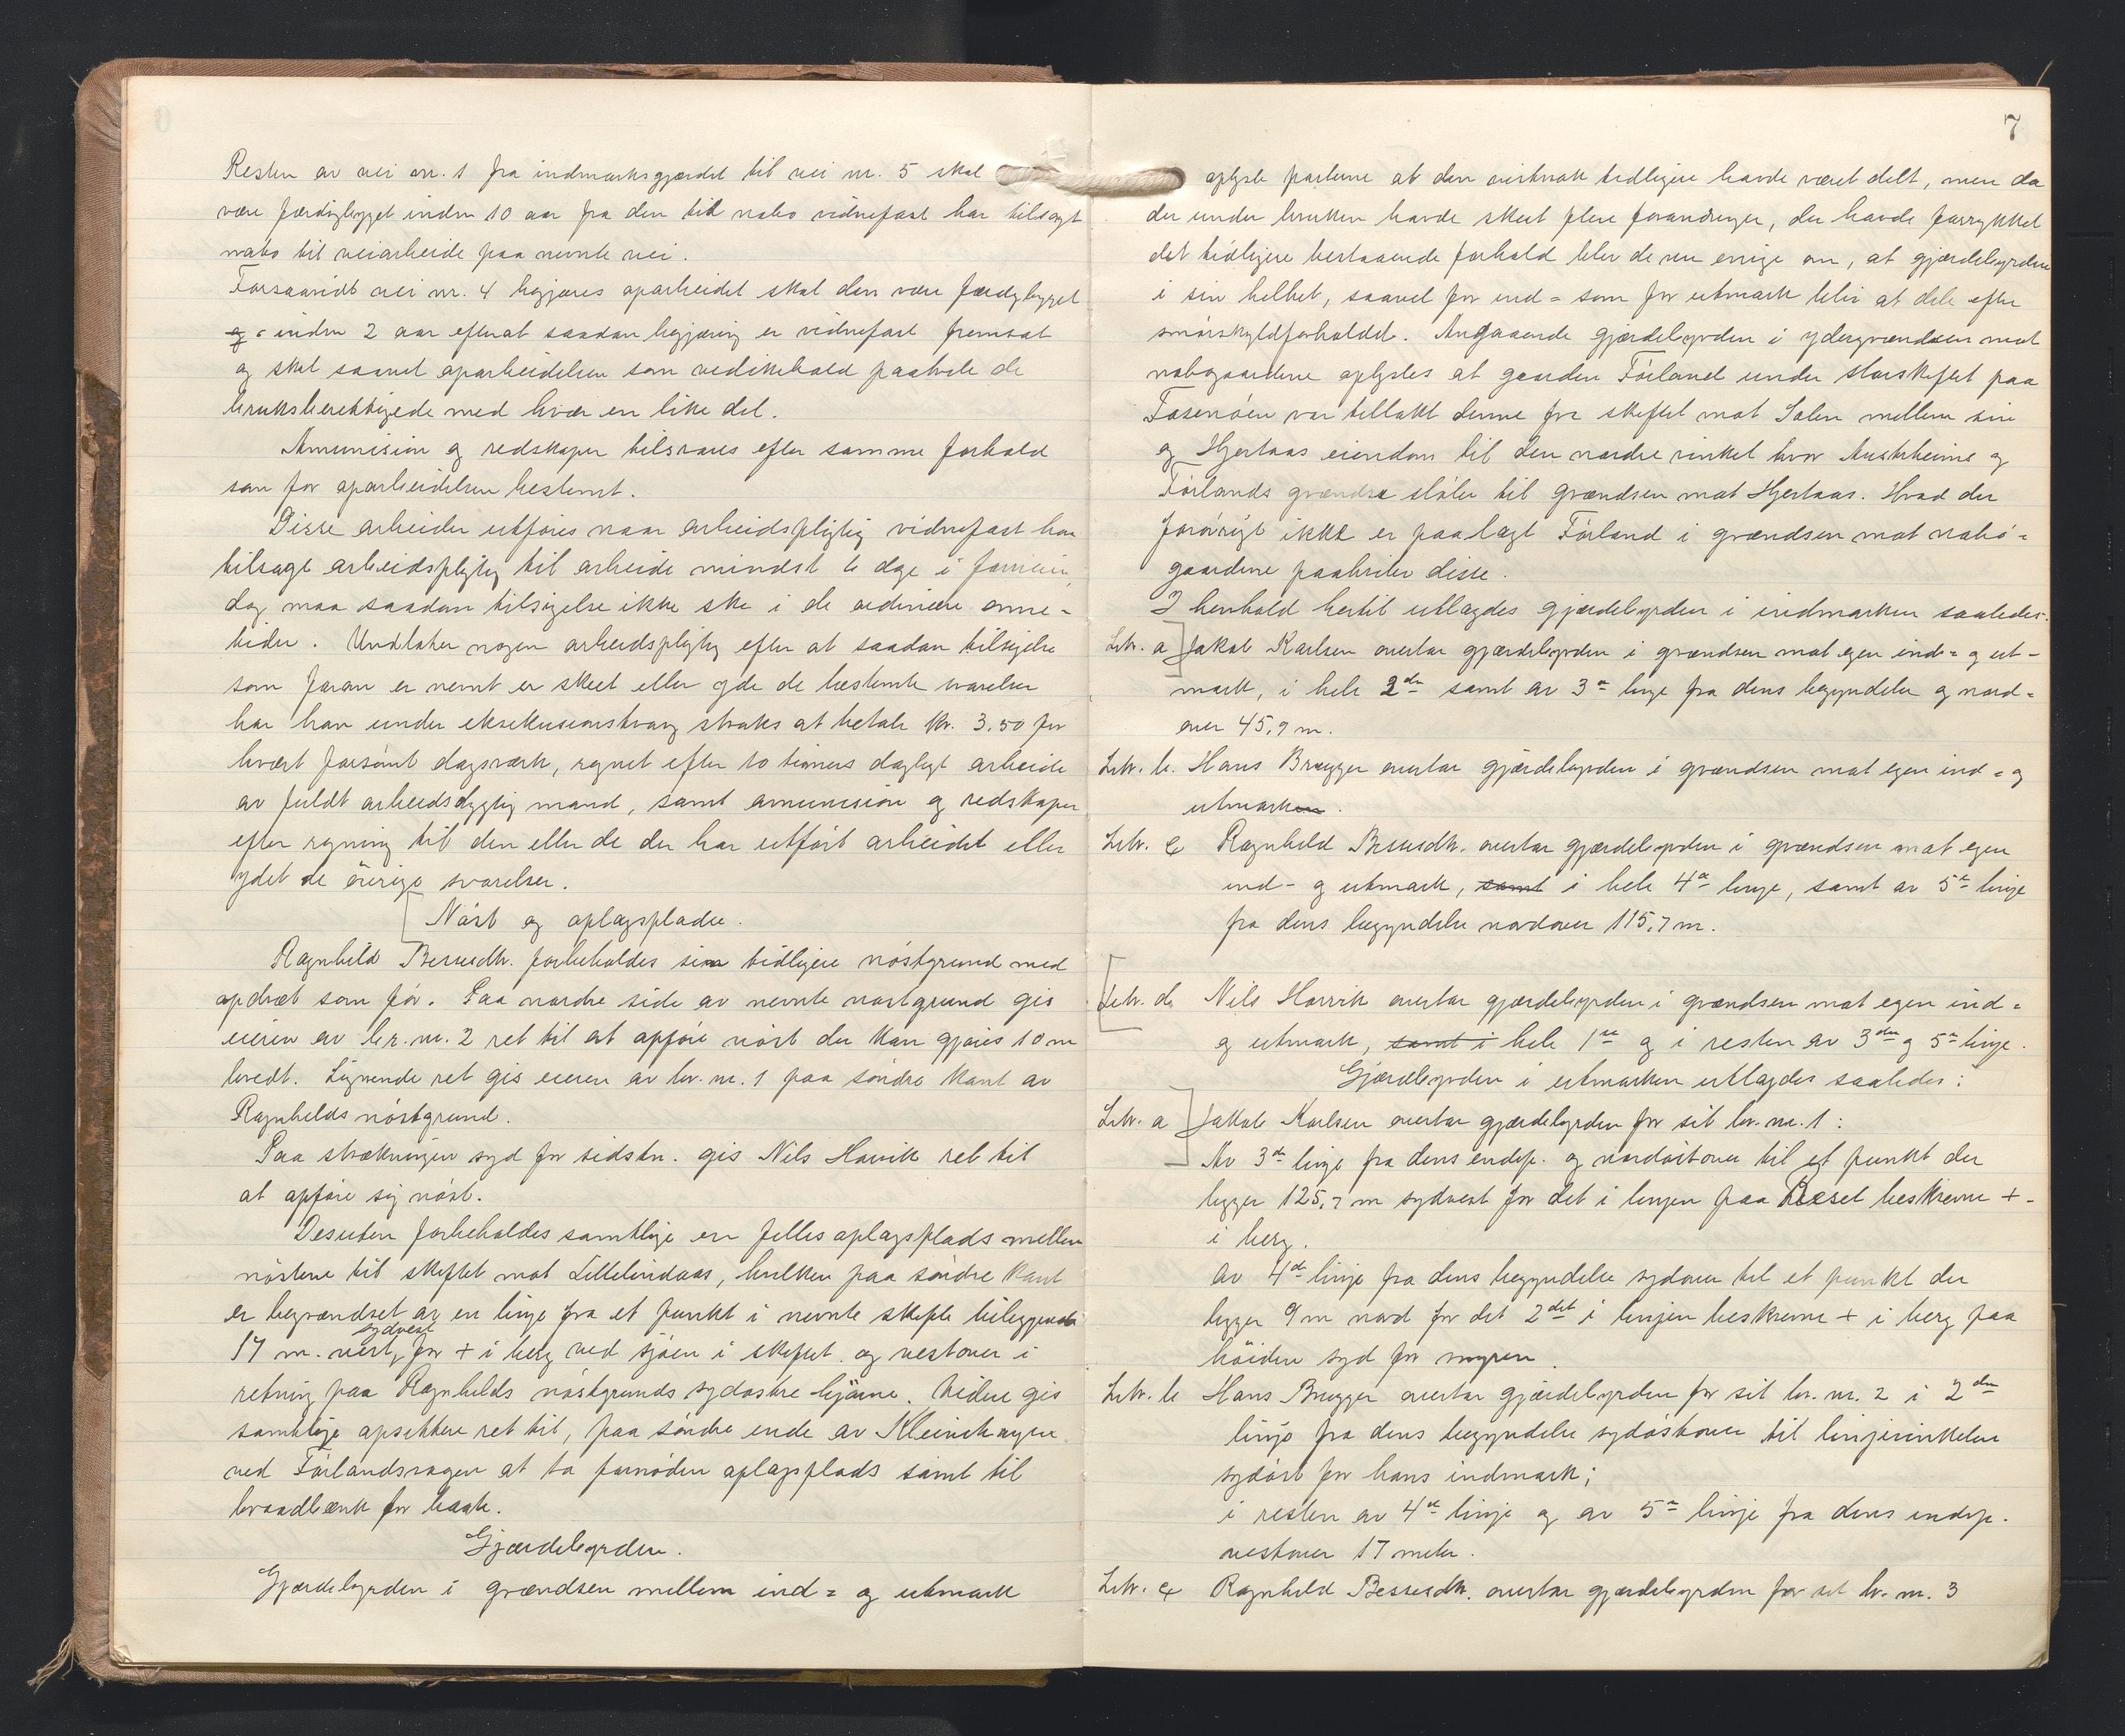 Resten av vei nr. 1 fra indmarksgjærdet til vei nr. 5 skal
være færdigbygget inden 10 aar fra den tid nabo vidnefast har tilsagt
nabo til veiarbeide paa nevnte vei.
Forsaavidt vei nr. 4 begjæres oparbeidet skal den være færdigbygget
inden 2 aar efterat saadan begjæring er vidnefast fremsat
og skal saavel oparbeidelsen som vedikehold paahvile de
bruksberettigede med hvær en like del.
Amunision og redskaper tilsvares efter samme forhold
som for oparbeidelsen bestemt.
Disse arbeider utføres naar arbeidspligtig vidnefast har
tilsagt arbeidspligtig til arbeide mindst 6 dage i forveien,
dog maa saadan tilsigelse ikke ske i de ordinære onne-
tider. Undlater nogen arbeidspligtig efter at saadan tilsigelse
som foran er nevnt er skeet eller yde de bestemte svarelser
har han under eksekusionstvang straks at betale kr. 3.50 for
hvært forsømt dagsværk, regnet efter 10 timers dagligt arbeide
av fuldt arbeidsdygtig mand, samt amunision og redskaper
efter regning til den eller de der har utført arbeidet eller
ydet de øvrige svarelser.
Nøst og oplagspladse.
Ragnhild Bessesdtr. forbeholdes sin tidligere nøstgrund med
opdræt som før. Paa nordre side av nevnte nøstgrund gis
eieren av br. nr. 2 ret til at opføre nøst der kan gjøres 10 m
bredt. Lignende ret gis eieren av br. nr. 1 paa søndre kant av
Ragnhilds nøstgrund.
Paa strækningen syd for sidstn. gis Nils Havik ret til
at opføre sig nøst.
Desuten forbeholdes samtlige en felles oplagsplads mellem
nøstene til skiftet mot Lillelindaas, hvilken paa søndre kant
er begrændset av en linje fra et punkt i nevnte skifte beliggende
17 m. sydvest for + i berg ved sjøen i skiftet og vestover i
retning paa Ragnhilds nøstgrunds sydøstre hjørne. Videre gis
samtlige opsittere ret til, paa søndre ende av Kleivehaugen
ved Førlandsvaagen at ta fornøden oplagsplads samt til
braadbænk for baat.
Gjærdebyrden.
Gjærdebyrden i grændsen mellem ind= og utmark
7
oplyste parterne at den vistnok tidligere havde været delt, men da
der under bruken havde skeet flere forandringer, der havde forrykket
det tidligere bestaaende forhold blev de nu enige om, at gjærdebyrden
i sin helhet, saavel for ind= som for utmark blir at dele efter
smørskyldforholdet. Angaaende gjærdebyrden i ydergrændsen mot
nabogaardene oplystes at gaarden Førland under storskiftet paa
Fosenøen var tillakt denne fra skiftet mot Solen mellem sin
og Hjertaas eiendom til den nordre vinkel hvor Austrheims og
Førlands grændse støter til grændsen mot Hjertaas. Hvad der
forøvrigt ikke er paalagt Førland i grændsen mot nabo=
gaardene paahviler disse.
I henhold hertil utlagdes gjærdebyrden i indmarken saaledes:
Litr. a Jakob Karlsen overtar gjærdebyrden i grændsen mot egen ind= og ut-
mark, i hele 2den samt av 3e linje fra dens begyndelse og nord=
over 45,9 m.
Litr. b. Hans Brugger overtar gjærdebyrden i grændsen mot egen ind= og
utmarken.
Litr. c Ragnhild Bessesdtr. overtar gjærdebyrden i grændsen mot egen
ind- og utmark, samt i hele 4de linje, samt av 5te linje
fra dens begyndelse nordover 115,7 m.
Litr. d. Nils Havvik overtar gjærdebyrden i grændsen mot egen ind=
og utmark, samt i hele 1ste og i resten av 3die og 5te linje.
Gjærdebyrden i utmarken utlagdes saaledes:
Litr. a Jakob Karlsen overtar gjærdebyrden for sit br. nr. 1:
Av 3die linje fra dens endep. og nordøstover til et punkt der
ligger 125,7 m sydvest for det i linjen paa beskrevne +-
i berg.
Av 4de linje fra dens begyndelse sydover til et punkt der
ligger 9 m nord for det 2det i linjen beskrevne + i berg paa
høiden syd for myren.
Litr. b Hans Brugger overtar gjærdebyrden for sit br. nr. 2 i 2den
linje fra dens begyndelse sydøstover til linjevinkelen
sydøst for hans indmark;
i resten av 4de linje og av 5te linje fra dens endep.
vestover 17 meter.
Litr. c Ragnhild Bessesdtr. overtar gjærdebyrden for sit br. nr. 3